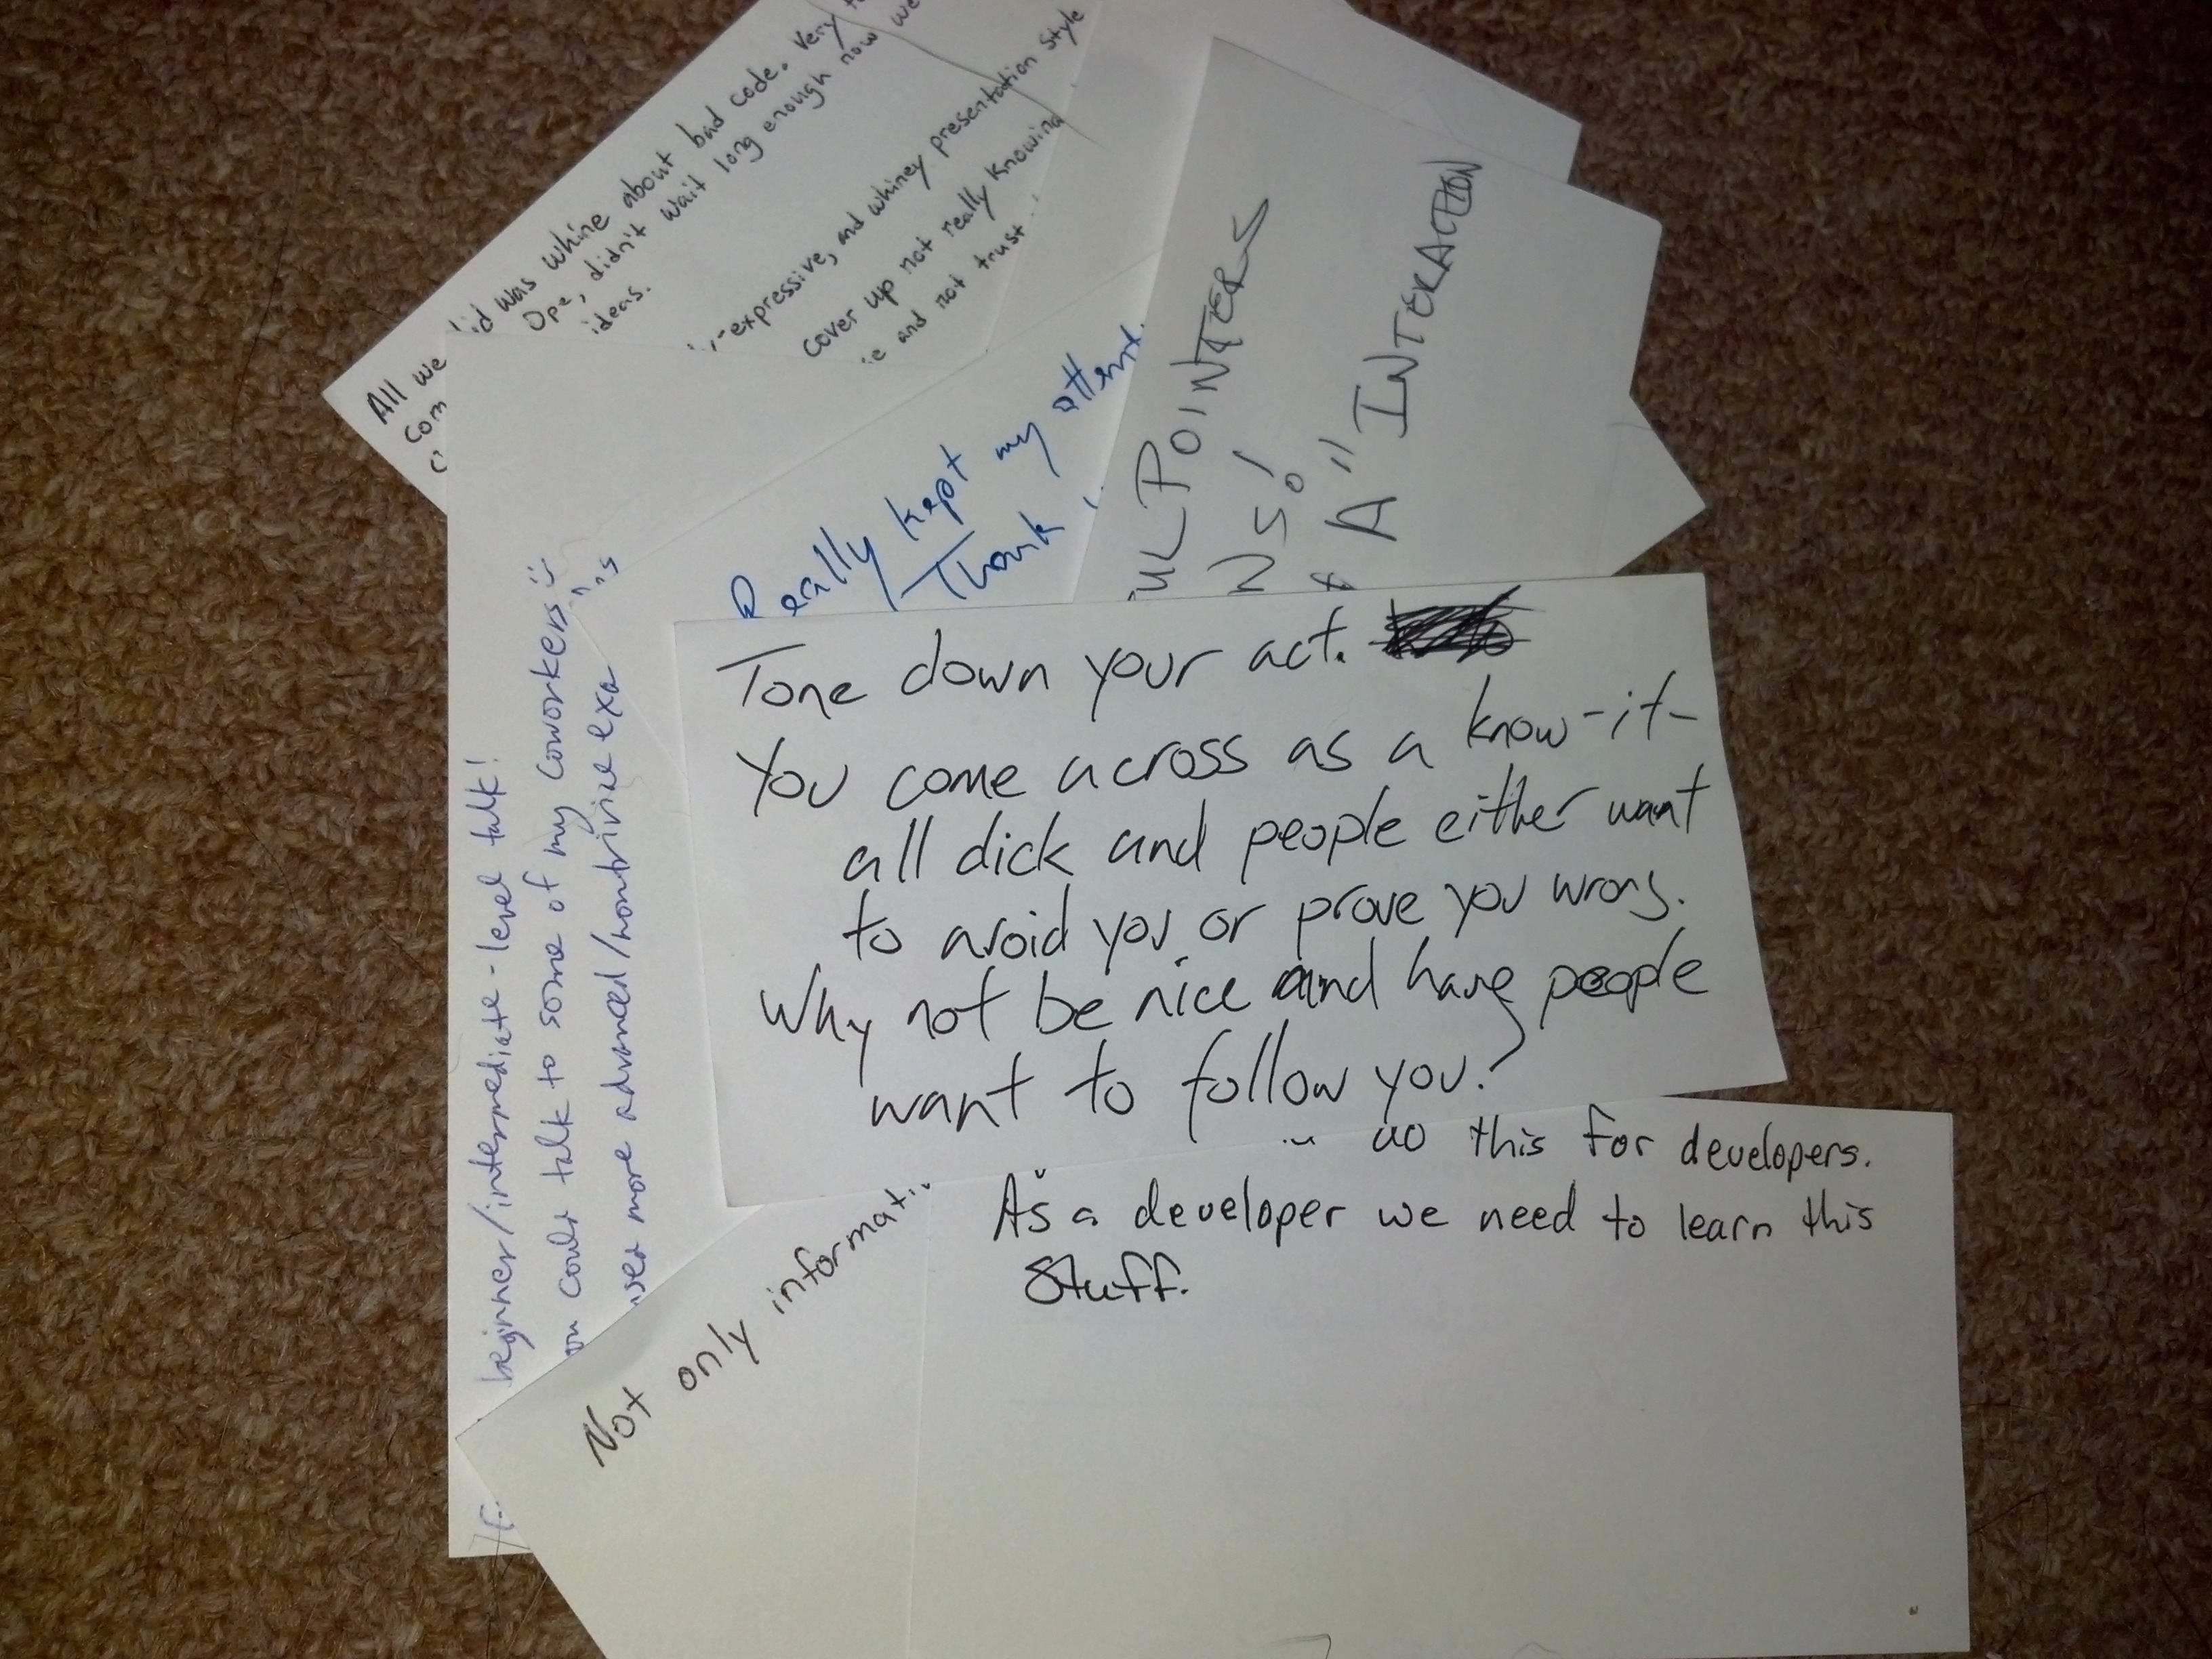 All we did was whine about bad code. Very
Ope, didn't wait long enough now we
ideas.
-expressive, and whiney presentation style
cover up not really knowing
and not trust
Really kept my
Thank
POINTERS
NS!
A" INTERACTION
beginner/intermediate-level talk!
could talk to some of my coworkers
more advanced/nontrivial
Tone down your act.
You come across as a know-it-
all dick and people either want
to avoid you or prove you wrong.
Why not be nice and have people
want to follow you?
Not only
do this for developers.
As a developer we need to learn this
Stuff.